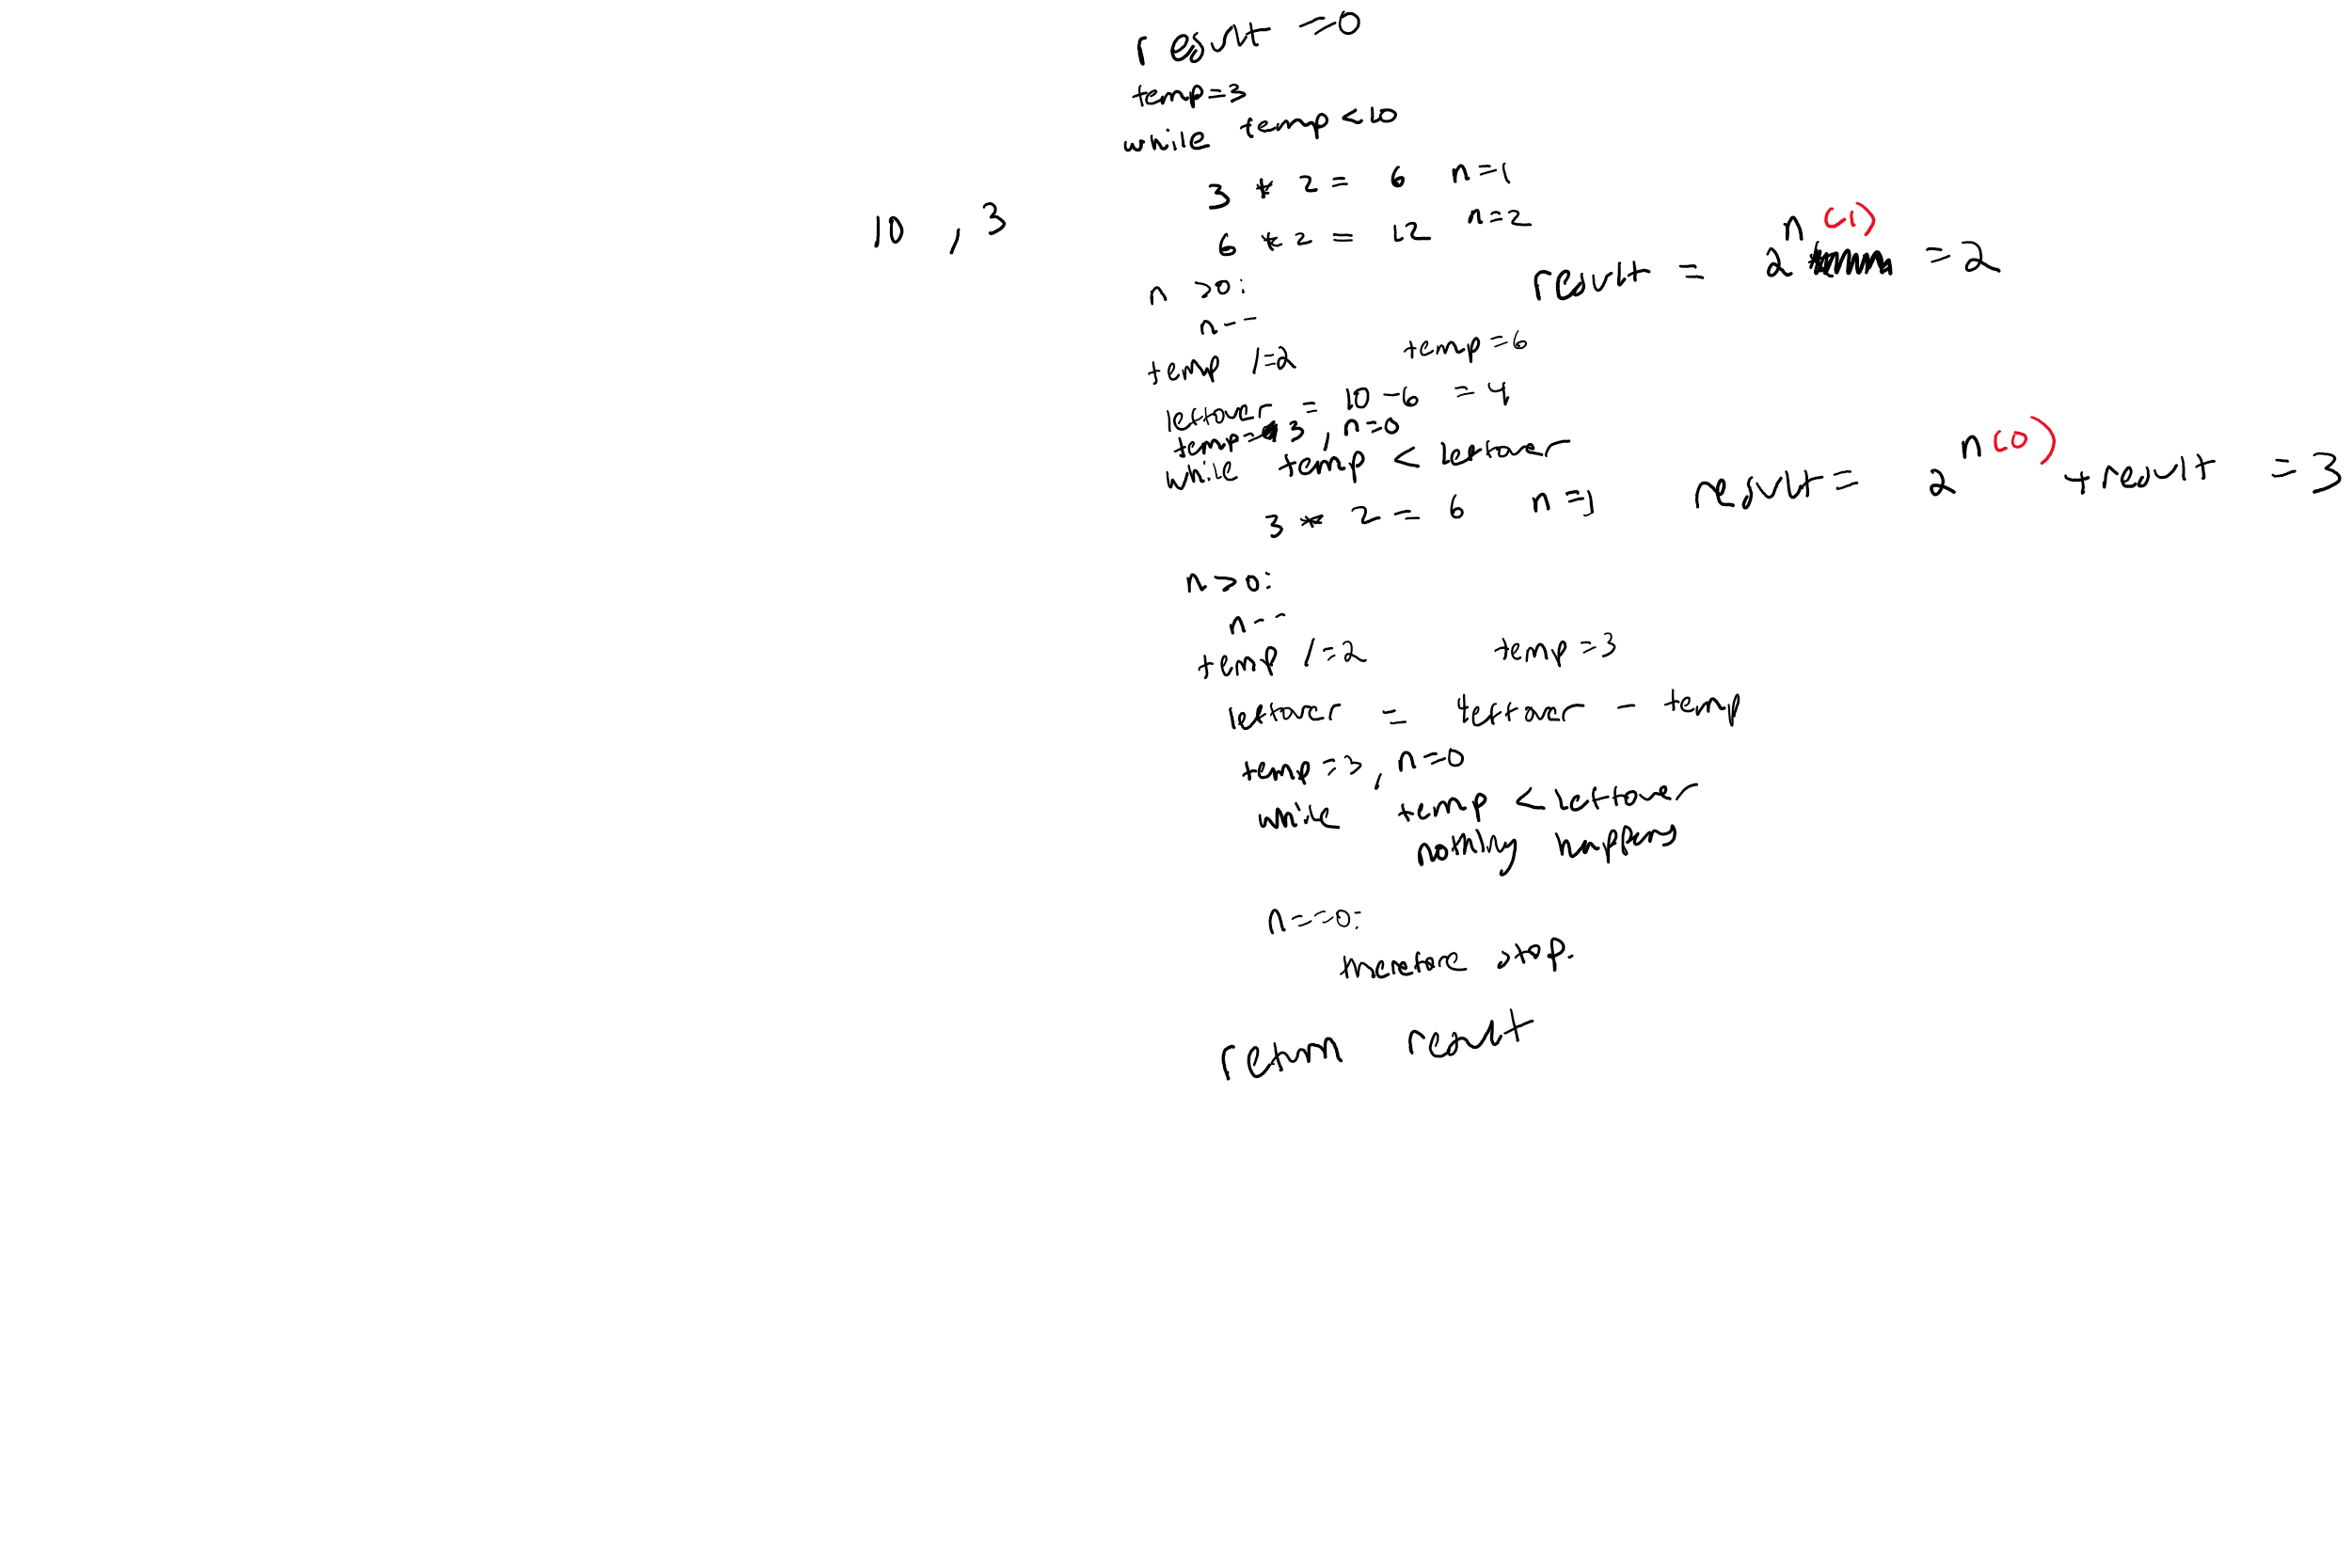 result = 0
temp=3
while temp < 10
3 * 2 = 6 n=1
10 , 3
6 * 2 = 12 n=2
n > 0:
result = 2^n (1) = 2
n--
temp /=2 temp=6
leftover = 10 - 6 = 4
temp= 3, n=0
while temp < leftover
3 * 2 = 6 n=1 result = 2^n (0) + result = 3
n > 0:
n--
temp /=2 temp=3
leftover = leftover - temp
temp=3, n=0
while temp < leftover
nothing happens
n==0:
therefore stop.
return result